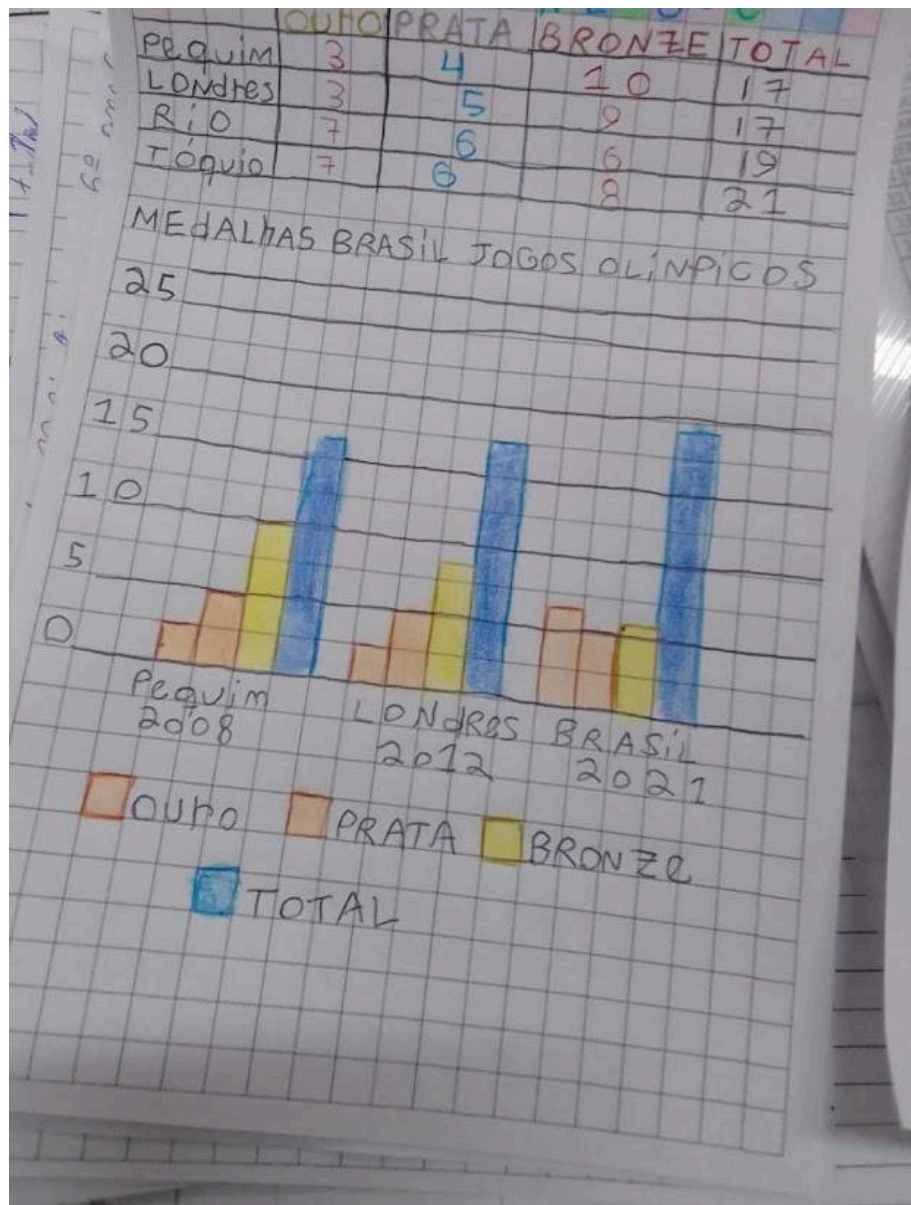 OUrO PRATA BRONZE TOTAL
PeQuim 3 4 10 17
LONdres 3 5 9 17
RiO 7 6 6 19
TóQuio 7 6 8 21
MEdALhAS BRASiL JOGOS OLiNPiCOS
25
20
15
10
5
0
PeQuim LONdRes BRASiL
2008 2012 2021
OUrO PRATA BRONZe
TOTAL
6º